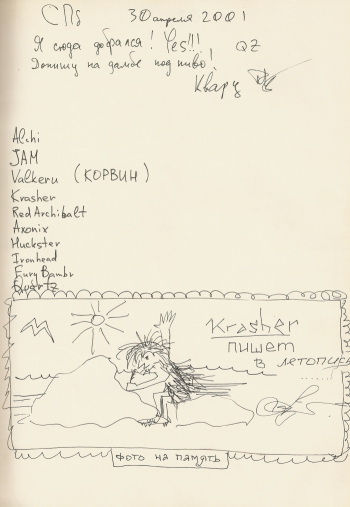 СПб 30 апреля 2001
Я сюда добрался! Yes!!! QZ
Допишу на дамбе под пиво!
Кварц
Alchi
JAM
Valkeru (КОРВИН)
Krasher
Red Archibalt
Axonix
Huckster
Ironhead
Fury Bambr
Quartz
Krasher
пишет
в летопись
.......
ФОТО НА ПАМЯТЬ